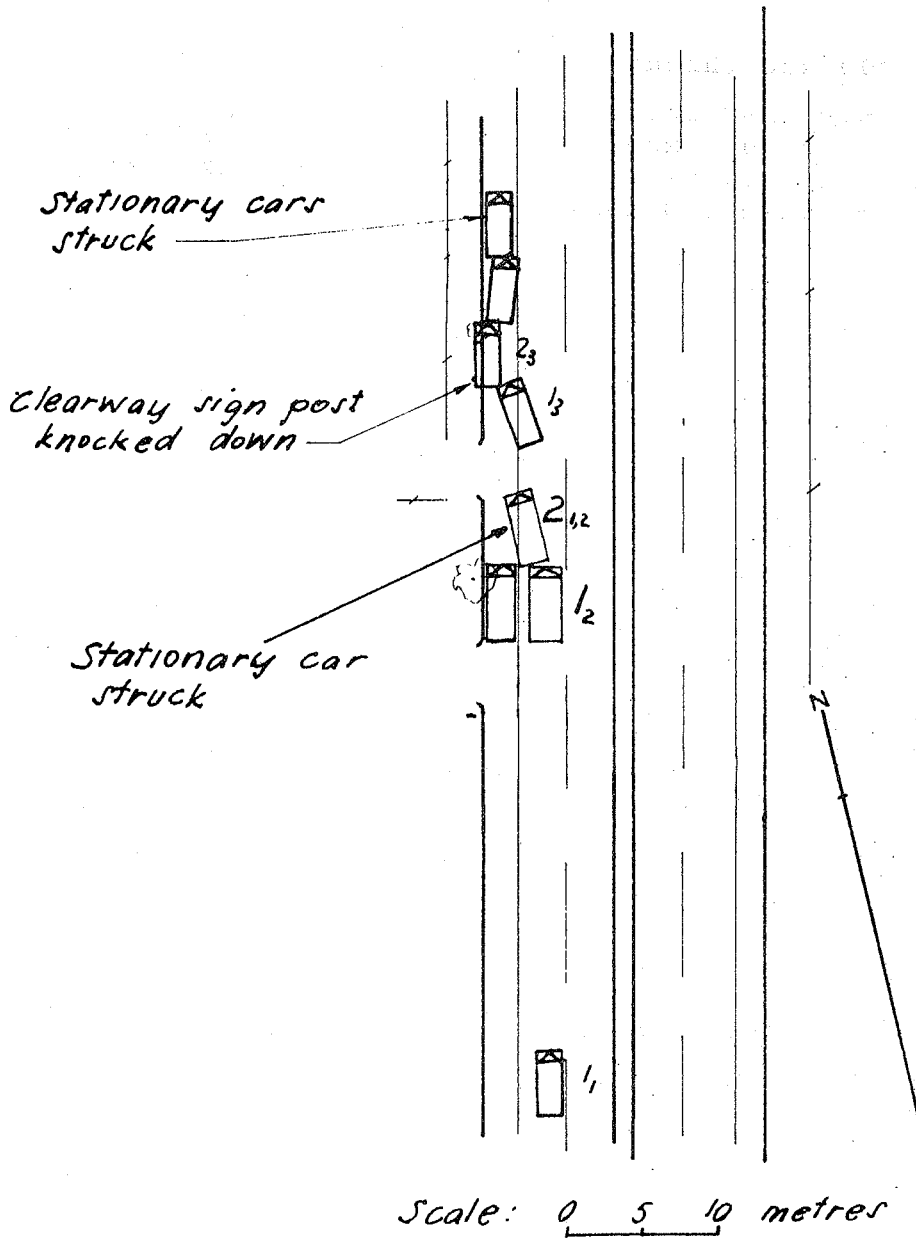 Stationary cars
struck
2₃
1₃
Clearway sign post
knocked down
2₁,₂
1₂
Stationary car
struck
N
1₁
Scale: 0 5 10 metres